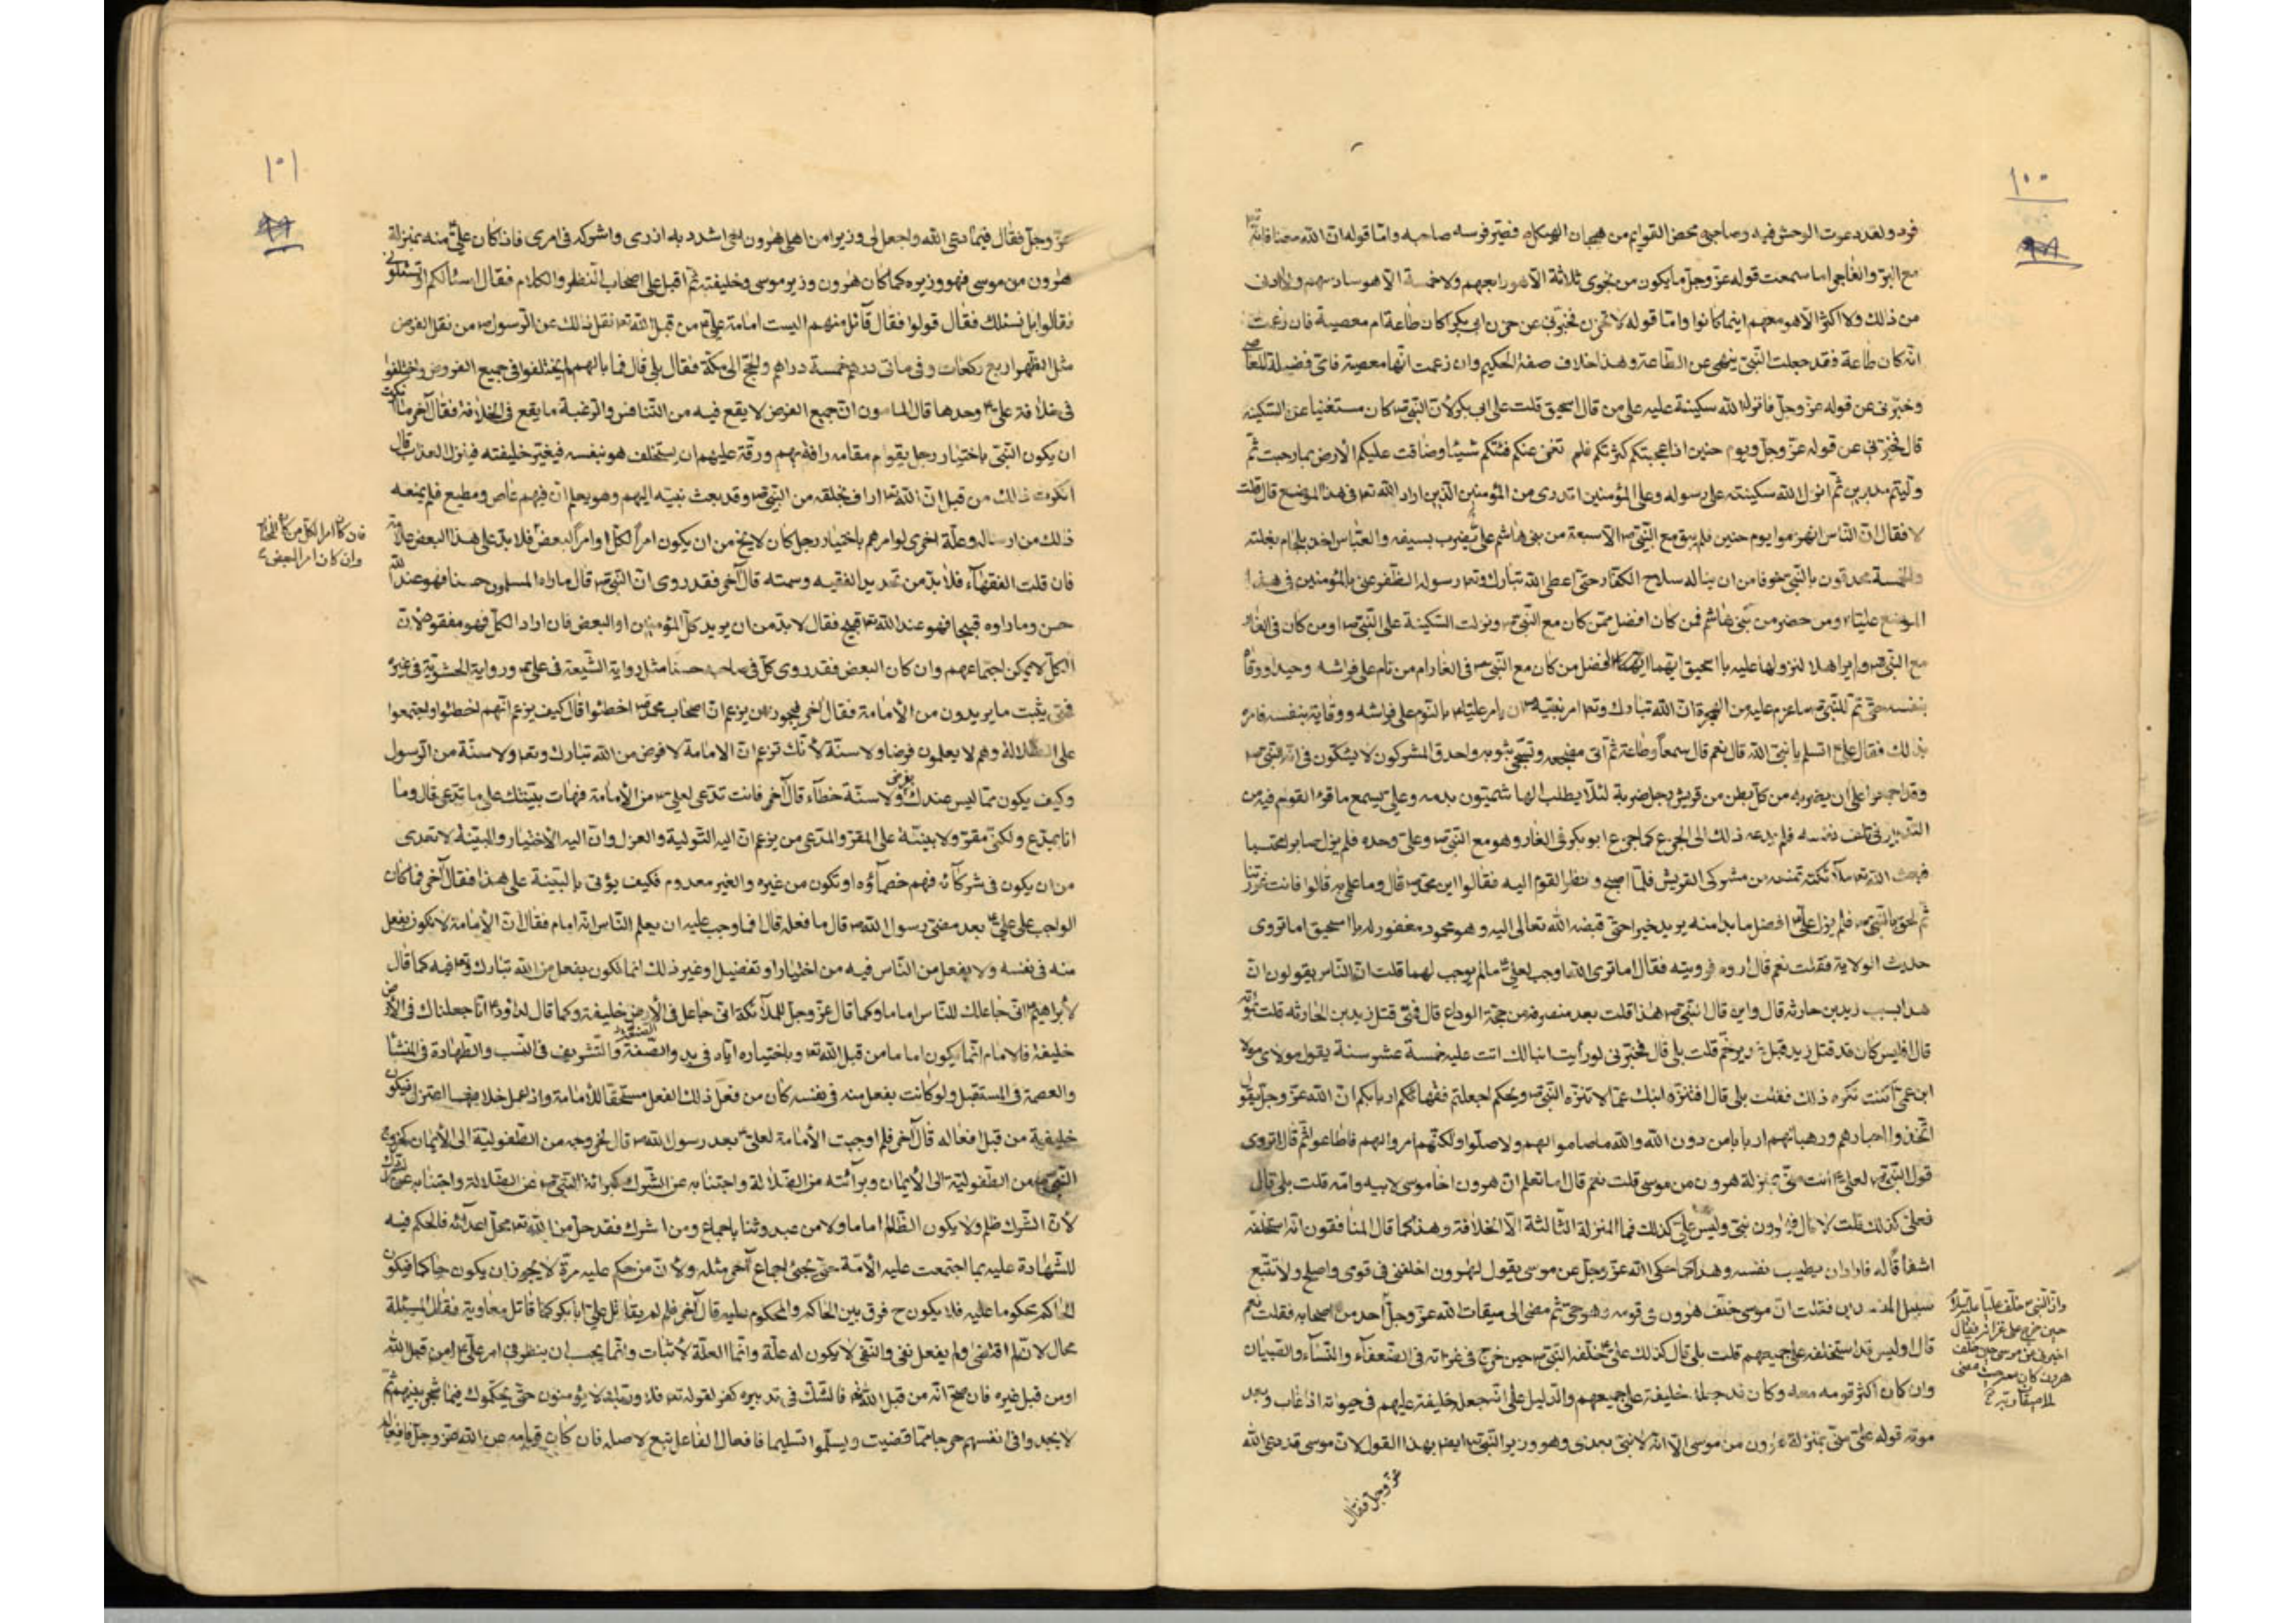 ١٠٠
فرد ولقد دعوت الوحش فيه وصاحبي محض القوايم من هجان الهيكل فصير فرسه صاحبه واما قوله ان الله معنا فانه
مع البر والفاجر اما سمعت قوله عز وجل ما يكون من نجوى ثلاثة الا هو رابعهم ولا خمسة الا هو سادسهم ولا ادنى
من ذلك ولا اكثر الا هو معهم اينما كانوا واما قوله لا تحزن فخبرني عن حزن ابي بكر اكان طاعة ام معصية فان زعمت
انه كان طاعة فقد جعلت النبي ينهى عن الطاعة وهذا خلاف صفة الحكيم وان زعمت انها معصية فاى فضيلة للعاصي
وخبرني عن قوله عز وجل فانزل الله سكينة عليه على من قال اسحق قلت على ابي بكر لان النبي ص كان مستغنيا عن السكينة
قال فخبرني عن قوله عز وجل ويوم حنين اذ اعجبتكم كثرتكم فلم تغن عنكم فئتكم شيئا وضاقت عليكم الأرض بما رحبت ثم
وليتم مدبرين ثم انزل الله سكينته على رسوله وعلى المؤمنين اتدرى من المؤمنين الذين اراد الله تعـ في هذا الموضع قال قلت
لا فقال ان الناس انهزموا يوم حنين فلم يبق مع النبي ص الا سبعة من بني هاشم علي ع يضرب بسيفه والعباس اخذ بلجام بغلته
والخمسة محدقون بالنبي خوفا من ان يناله سلاح الكفار حتى اعطى الله تبارك وتعـ رسوله الظفر عنى بالمؤمنين في هذا
الموضع عليا ع ومن حضر من بني هاشم فمن كان افضل ممن كان مع النبي ص ونزلت السكينة على النبي ص او من كان في الغار
مع النبي ص ولم يراهلا لنزولها عليه يا اسحق ايهما افضل من كان مع النبي ص في الغار ام من نام على فراشه ووقاه
بنفسه حتى تم للنبي ص ما عزم عليه من الهجرة ان الله تبارك وتعـ امر نبيه ص ان يامر عليا ع بالنوم على فراشه ووقاية بنفسه فامره
بذلك فقال علي ع اتسلم يا نبي الله قال نعم قال سمعاً وطاعة ثم اتى مضجعه وتسجى بثوبه واحدق المشركون لا يشكون في انه النبي ص
وقد اجمعوا على ان يضربه من كل بطن من قريش رجل ضربة لئلا يطلب الهاشميون بدمه وعلي يسمع ما فيه القوم من
التدبير في تلف نفسه فلم يدعه ذلك الى الجزع كما جزع ابو بكر في الغار وهو مع النبي ص وعلي وحده فلم يزل صابرا محتسبا
فبعث الله تعـ ملائكته تمنعه من مشركي القريش فلما اصبح قام فنظر القوم اليه فقالوا اين محمد ص قال وما علمي به قالوا فانت غررتنا
ثم لحق بالنبي ص فلم يزل علي ع افضل ما بدا منه يزيد خيرا حتى قبضه الله تعالى اليه وهو محمود مغفور له يا اسحق اما تروى
حديث الولاية فقلت نعم قال اروه فرويته فقال اما ترى انه اوجب لعلي ع ما لم يوجب لهما قلت ان الناس يقولون ان
هذا بسبب زيد بن حارثه قال واين قال النبي ص هذا قلت بعد منصرفه من حجة الوداع قال فمتى قتل زيد بن الحارثه قلت بموته
قال افليس كان قد قتل زيد قبل غدير خم قلت بلى قال فخبرني لو رأيت ابنا لك اتت عليه خمسة عشر سنة يقول مولاى مولا
ابن عمي اكنت تكره ذلك فقلت بلى قال افتنزه ابنك عما لا تنزه النبي ص ويحكم اجعلتم فقهائكم اربابكم ان الله عز وجل يقول
اتخذوا احبارهم ورهبانهم اربابا من دون الله والله ما صاموا لهم ولا صلوا ولكنهم امروا لهم فاطاعوا ثم قال اتروى
قول النبي ص لعلي ع انت مني بمنزلة هرون من موسى قلت نعم قال اما تعلم ان هرون اخا موسى لابيه وامه قلت بلى قال
فعلي كذلك قلت لا قال فهرون نبي وليس علي كذلك فما المنزلة الثالثة الا الخلافة وهذا كما قال المنافقون انه استخلفه
استثقالا له فاراد ان يطيب نفسه وهذا كما حكى الله عز وجل عن موسى يقول لهرون اخلفني في قومى واصلح ولا تتبع
سبيل المفسدين فقلت ان موسى خلف هرون في قومه وهو حي ثم مضى الى ميقات الله عز وجل احد من اصحابه فقلت نعم
قال اوليس قد استخلفه على جميعهم قلت بلى قال كذلك علي ع خلفه النبي ص حين خرج في غزاته في الضعفاء والنساء والصبيان
وان كان اكثر قومه معه وكان قد جعله خليفة على جميعهم والدليل على انه جعله خليفة عليهم في حيوته اذا غاب وبعد
موته قوله علي مني بمنزلة هرون من موسى الا انه لا نبي بعدى وهو وزير النبي ص ايضا بهذا القول لان موسى قد دعى الله
عز وجل فقال
حين خرج
هرون كان معه حيث مضى
١٠١
عز وجل فقال فيما دعى الله واجعل لي وزيرا من اهلي هرون اخى اشدد به ازرى واشركه في امرى فاذا كان علي ع منه بمنزلة
هرون من موسى فهو وزيره كما كان هرون وزير موسى وخليفته ثم اقبل على اصحاب النظر والكلام فقال اسئالكم او تسئلوني
فقالوا بل نسئلك فقال قولوا فقال قائل منهم اليست امامة علي ع من قبل الله تعـ نقل ذلك عن الرسول ص من نقل الفرض
مثل الظهر اربع ركعات وفي ماتى درهم خمسة دراهم والحج الى مكة فقال بلى قال فما بالهم لم يختلفوا في جميع الفروض واختلفوا
في خلافة علي ع وحدها قال المامون ان جميع الفرض لا يقع فيه من التنافس والرغبة ما يقع في الخلافة فقال آخر ما انكرت
ان يكون النبي باختيار رجل يقوم مقامه رافة بهم ورقة عليهم ان يستخلف هو بنفسه فيغير خليفته فينزل العذاب قال
انكرت ذلك من قبل ان الله تعـ ارأف بخلقه من النبي ص وقد بعث نبيه اليهم وهو يعلم ان فيهم عاص ومطيع فلم يمنعه
ذلك من ارساله وعلة اخرى لو امرهم باختيار رجل كان لا يخ من ان يكون امراً لكل او امراً لبعض فلا بد على هذا البعض علامة
فان قلت الفقهاء فلا بد من تحديد الفقيه وسمته قال آخر فقد روى ان النبي ص قال ما راه المسلمون حسنا فهو عند الله
حسن وما راوه قبيحا فهو عند الله تعـ قبيح فقال لا بد من ان يريد كل المؤمنين او البعض فان اراد الكل فهو مفقود لان
الكل لا يمكن اجتماعهم وان كان البعض فقد روى كل في صاحبه حسنا مثل رواية الشيعة في علي ع ورواية الحشوية في غيره
فمتى يثبت ما يريدون من الأمامة فقال اخر فيجوز ان يزعم ان اصحاب محمد ص اخطئوا قال كيف يزعم انهم اخطئوا واجتمعوا
على الضلالة وهم لا يعلمون فرضا ولا سنة لأنك تزعم ان الامامة لا فرض من الله تبارك وتعـ ولا سنة من الرسول
وكيف يكون مما ليس عندك بفرض ولا سنة خطآء قال آخر فانت تدعى لعلي ع من الأمامة فهات بينتك على ما تدعى قال وما
انا بمدع ولكني مقر ولا بينة على المقر والمدعى من يزعم ان اليه التولية والعزل وان اليه الأختيار والبينة لا تعدى
من ان يكون في شركائه فهم خصماؤه او تكون من غيره والغير معدوم فكيف يؤتى بالبينة على هذا فقال آخر فما كان
الواجب على علي ع بعد مضى رسول الله ص قال ما فعله قال افما وجب عليه ان يعلم الناس انه امام فقال ان الأمامة لا تكون بفعل
منه في نفسه ولا بفعل من الناس فيه من اختيار او تفضيل او غير ذلك انما تكون بفعل من الله تبارك وتعـ فيه كما قال
لأبراهيم ع اني جاعلك للناس اماما وكما قال عز وجل للملائكة انى جاعل في الأرض خليفة وكما قال لداود ع انا جعلناك في الأرض
خليفة فالامام انما يكون اماما من قبل الله تعـ وباختياره اياه في بدو الصنعة والتشريف في النسب والطهارة في المنشأ
والعصمة في المستقبل ولو كانت بفعل منه في نفسه كان من فعل ذلك الفعل مستحقا للأمامة واذا عمل خلافها اعتزل فيكون
خليفة من قبل افعاله قال آخر فلم اوجبت الأمامة لعلي ع بعد رسول الله ص قال لخروجه من الطفولية الى الأيمان كخروج
النبي ص من الطفولية الى الأيمان وبرآئته من الضلالة واجتنابه عن الشرك كبرائة النبي ص عن الضلالة واجتنابه عن الشرك
لأن الشرك ظلم ولا يكون الظالم اماما ولا من عبد وثنا باجماع ومن اشرك فقد حل من الله تعـ محل اعدائه فالحكم فيه
للشهادة عليه بما اجتمعت عليه الأمة حتى يجئ اجماع آخر مثله ولأن من حكم عليه مرة لا يجوز ان يكون حاكما فيكون
الحاكم محكوما عليه فلا يكون ح فرق بين الحاكم والمحكوم عليه قال آخر فلم لم يقاتل علي ع ابا بكر كما قاتل معاوية فقال المسئلة
محال لان لم اقتضى ولم يفعل نفى والنفى لا يكون له علة وانما العلة لأثبات وانما يجب ان ينظر في امر علي ع امن قبل الله
او من قبل غيره فان صح انه من قبل الله تعـ فالشك في تدبيره كفر لقوله تعـ فلا وربك لا يؤمنون حتى يحكموك فيما شجر بينهم ثم
لا يجدوا في انفسهم حرجا مما قضيت ويسلموا تسليما فافعال الفاعل تبع لاصله فان كان قيامه عن الله عز وجل فافعاله
وان كان امرا لبعض